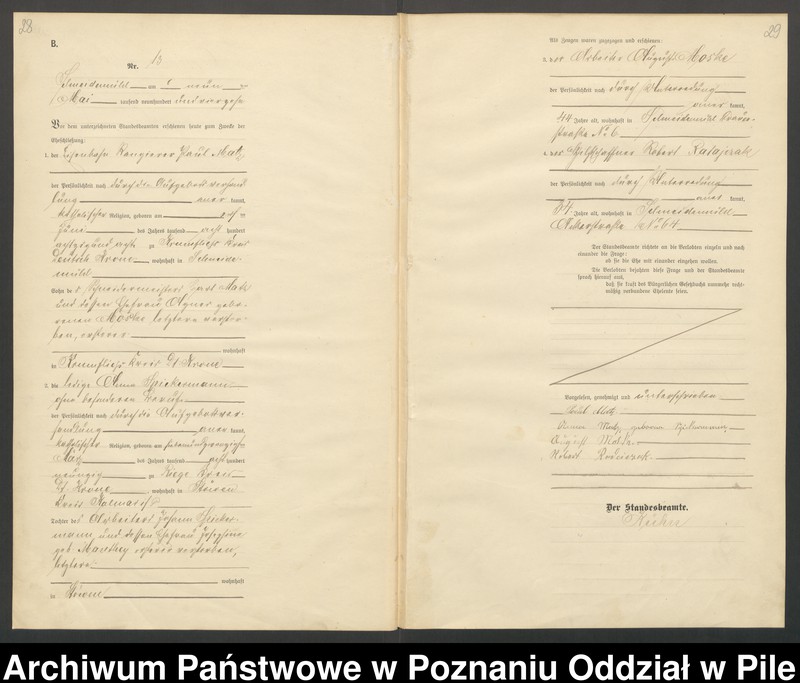 28
B.
Nr. 13
Schneidemühl am neun
Mai tausend neunhundert und vierzehn
Vor dem unterzeichneten Standesbeamten erschienen heute zum Zwecke der
Eheschließung:
1. der Eisenbahn Rangierer Paul
der Persönlichkeit nach durch die Aufgebotsverhand
lung kannt,
katholischer Religion, geboren am
Juni des Jahres tausend acht hundert
zu Kreis
Deutsch Krone wohnhaft in Schneide-
mühl
Sohn des Schneidermeisters
und dessen Ehefrau Agnes gebo-
renen letztere verstor-
ben, ersterer
wohnhaft
in Kreis Dt Krone
2. die ledige Anna Spickermann
ohne besonderen Beruf
der Persönlichkeit nach durch die Aufgebotsver-
handlung kannt,
katholischer Religion, geboren am
März des Jahres tausend acht hundert
neunzig zu Riege Kreis
Dt. Krone, wohnhaft in Stöwen
Kreis Kolmar i/P
Tochter des Arbeiters Johann Spicker-
mann und dessen Ehefrau Josephine
geb. Manthey ersterer verstorben,
letztere
wohnhaft
in Stöwen
29
Als Zeugen waren zugezogen und erschienen:
3. der Arbeiter August Moske
der Persönlichkeit nach durch Unterredung
kannt,
44 Jahre alt, wohnhaft in Schneidemühl
straße No 6
4. der Hilfsschaffner Robert
der Persönlichkeit nach durch Unterredung
kannt,
34 Jahre alt, wohnhaft in Schneidemühl
Ackerstraße No 64
Der Standesbeamte richtete an die Verlobten einzeln und nach
einander die Frage:
ob sie die Ehe mit einander eingehen wollen.
Die Verlobten bejahten diese Frage und der Standesbeamte
sprach hierauf aus,
daß sie kraft des Bürgerlichen Gesetzbuchs nunmehr recht-
mäßig verbundene Eheleute seien.
Vorgelesen, genehmigt und unterschrieben
Paul
Anna geborene Spickermann
August Moske
Robert
Der Standesbeamte.
Archiwum Państwowe w Poznaniu Oddział w Pile